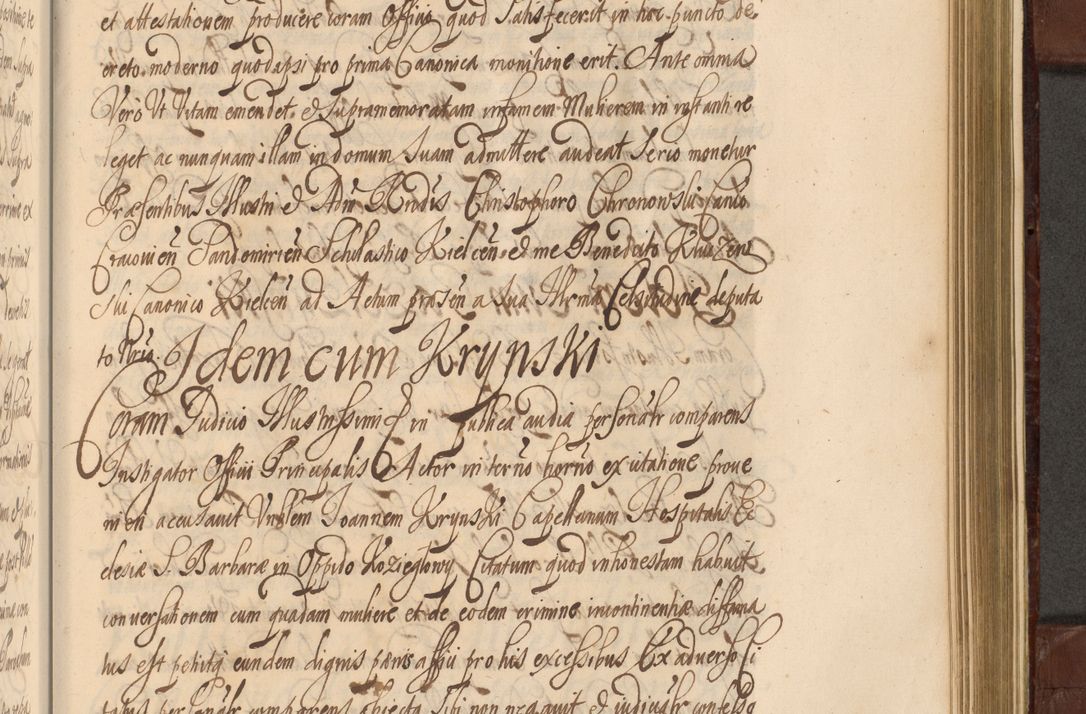 et attestationem producere coram Officio quod Satisfecerit in hoc puncto de
creto moderno quod ipsi pro prima Canonica monitione erit. Ante omnia
Vero Ut Vitam emendet et Supramemoratam infamem Mulierem in instanti re
leget ac nunquam illam in domum Suam admittere audeat Serio monetur
Præsentibus Illustri et Adm Rndis Christophoro Chronowski Canco
Cracovien Sandomirien Scholastico Kielcen et me Benedicto
ski Canonico Kielcen ad Actum præsen a Sua Illrma Celsitudine deputa
to Nrio. Idem cum Krynski
Coram Judicio Illustrissimi in publica audia personalr comparens
Instigator Officii Principalis Actor in terno horno ex citatione prove
nien accusavit Vnblem Joannem Krynski Capellanum Hospitalis Ec
clesiæ S. Barbaræ in Oppido Kozieglowy Citatum quod inhonestam habuit
conversationem cum quadam muliere et de eodem crimine incontinentiæ diffama
tus est petitq eundem dignis pænis affici pro his excessibus Ex adverso Ci
tatus personalr comparens obiecta Sibi non negavit et iudicialr confesso